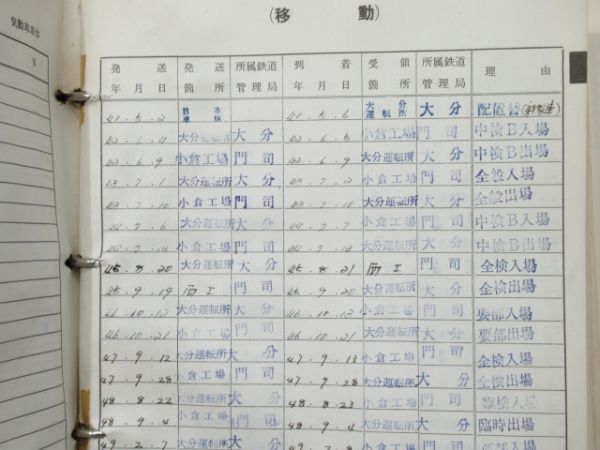 気動車
(移動)
発送 発送 所属鉄道 到着 受領 所属鉄道 理由
年月日 箇所 管理局 年月日 箇所 管理局
41.5.2 日本 41.5.6 大分運転所 大分 配置
大分運転所 大分 小倉工場 門司 中検B入場
小倉工場 門司 大分運転所 大分 中検B出場
大分運転所 大分 小倉工場 門司 全般入場
小倉工場 門司 大分運転所 大分 全般出場
大分運転所 大分 小倉工場 門司 中検B入場
小倉工場 門司 大分運転所 大分 中検B出場
45.8.20 大分運転所 大分 45.8.21 門司 全検入場
45.9.19 門司 45.9.20 大分運転所 大分 全検出場
46.10.12 大分運転所 大分 46.10.13 小倉工場 門司 要部入場
46.10.21 小倉工場 門司 46.10.21 大分運転所 大分 要部出場
47.9.12 大分運転所 大分 47.9.13 小倉工場 門司 全検入場
47.9.28 小倉工場 門司 47.9.28 大分運転所 大分 全検出場
48.8.22 大分運転所 大分 48.8.23 小倉工場 門司 臨検入場
48.9.4 小倉工場 門司 48.9.4 大分運転所 大分 臨時出場
49.2.7 大分運転所 大分 小倉工場 門司 入場